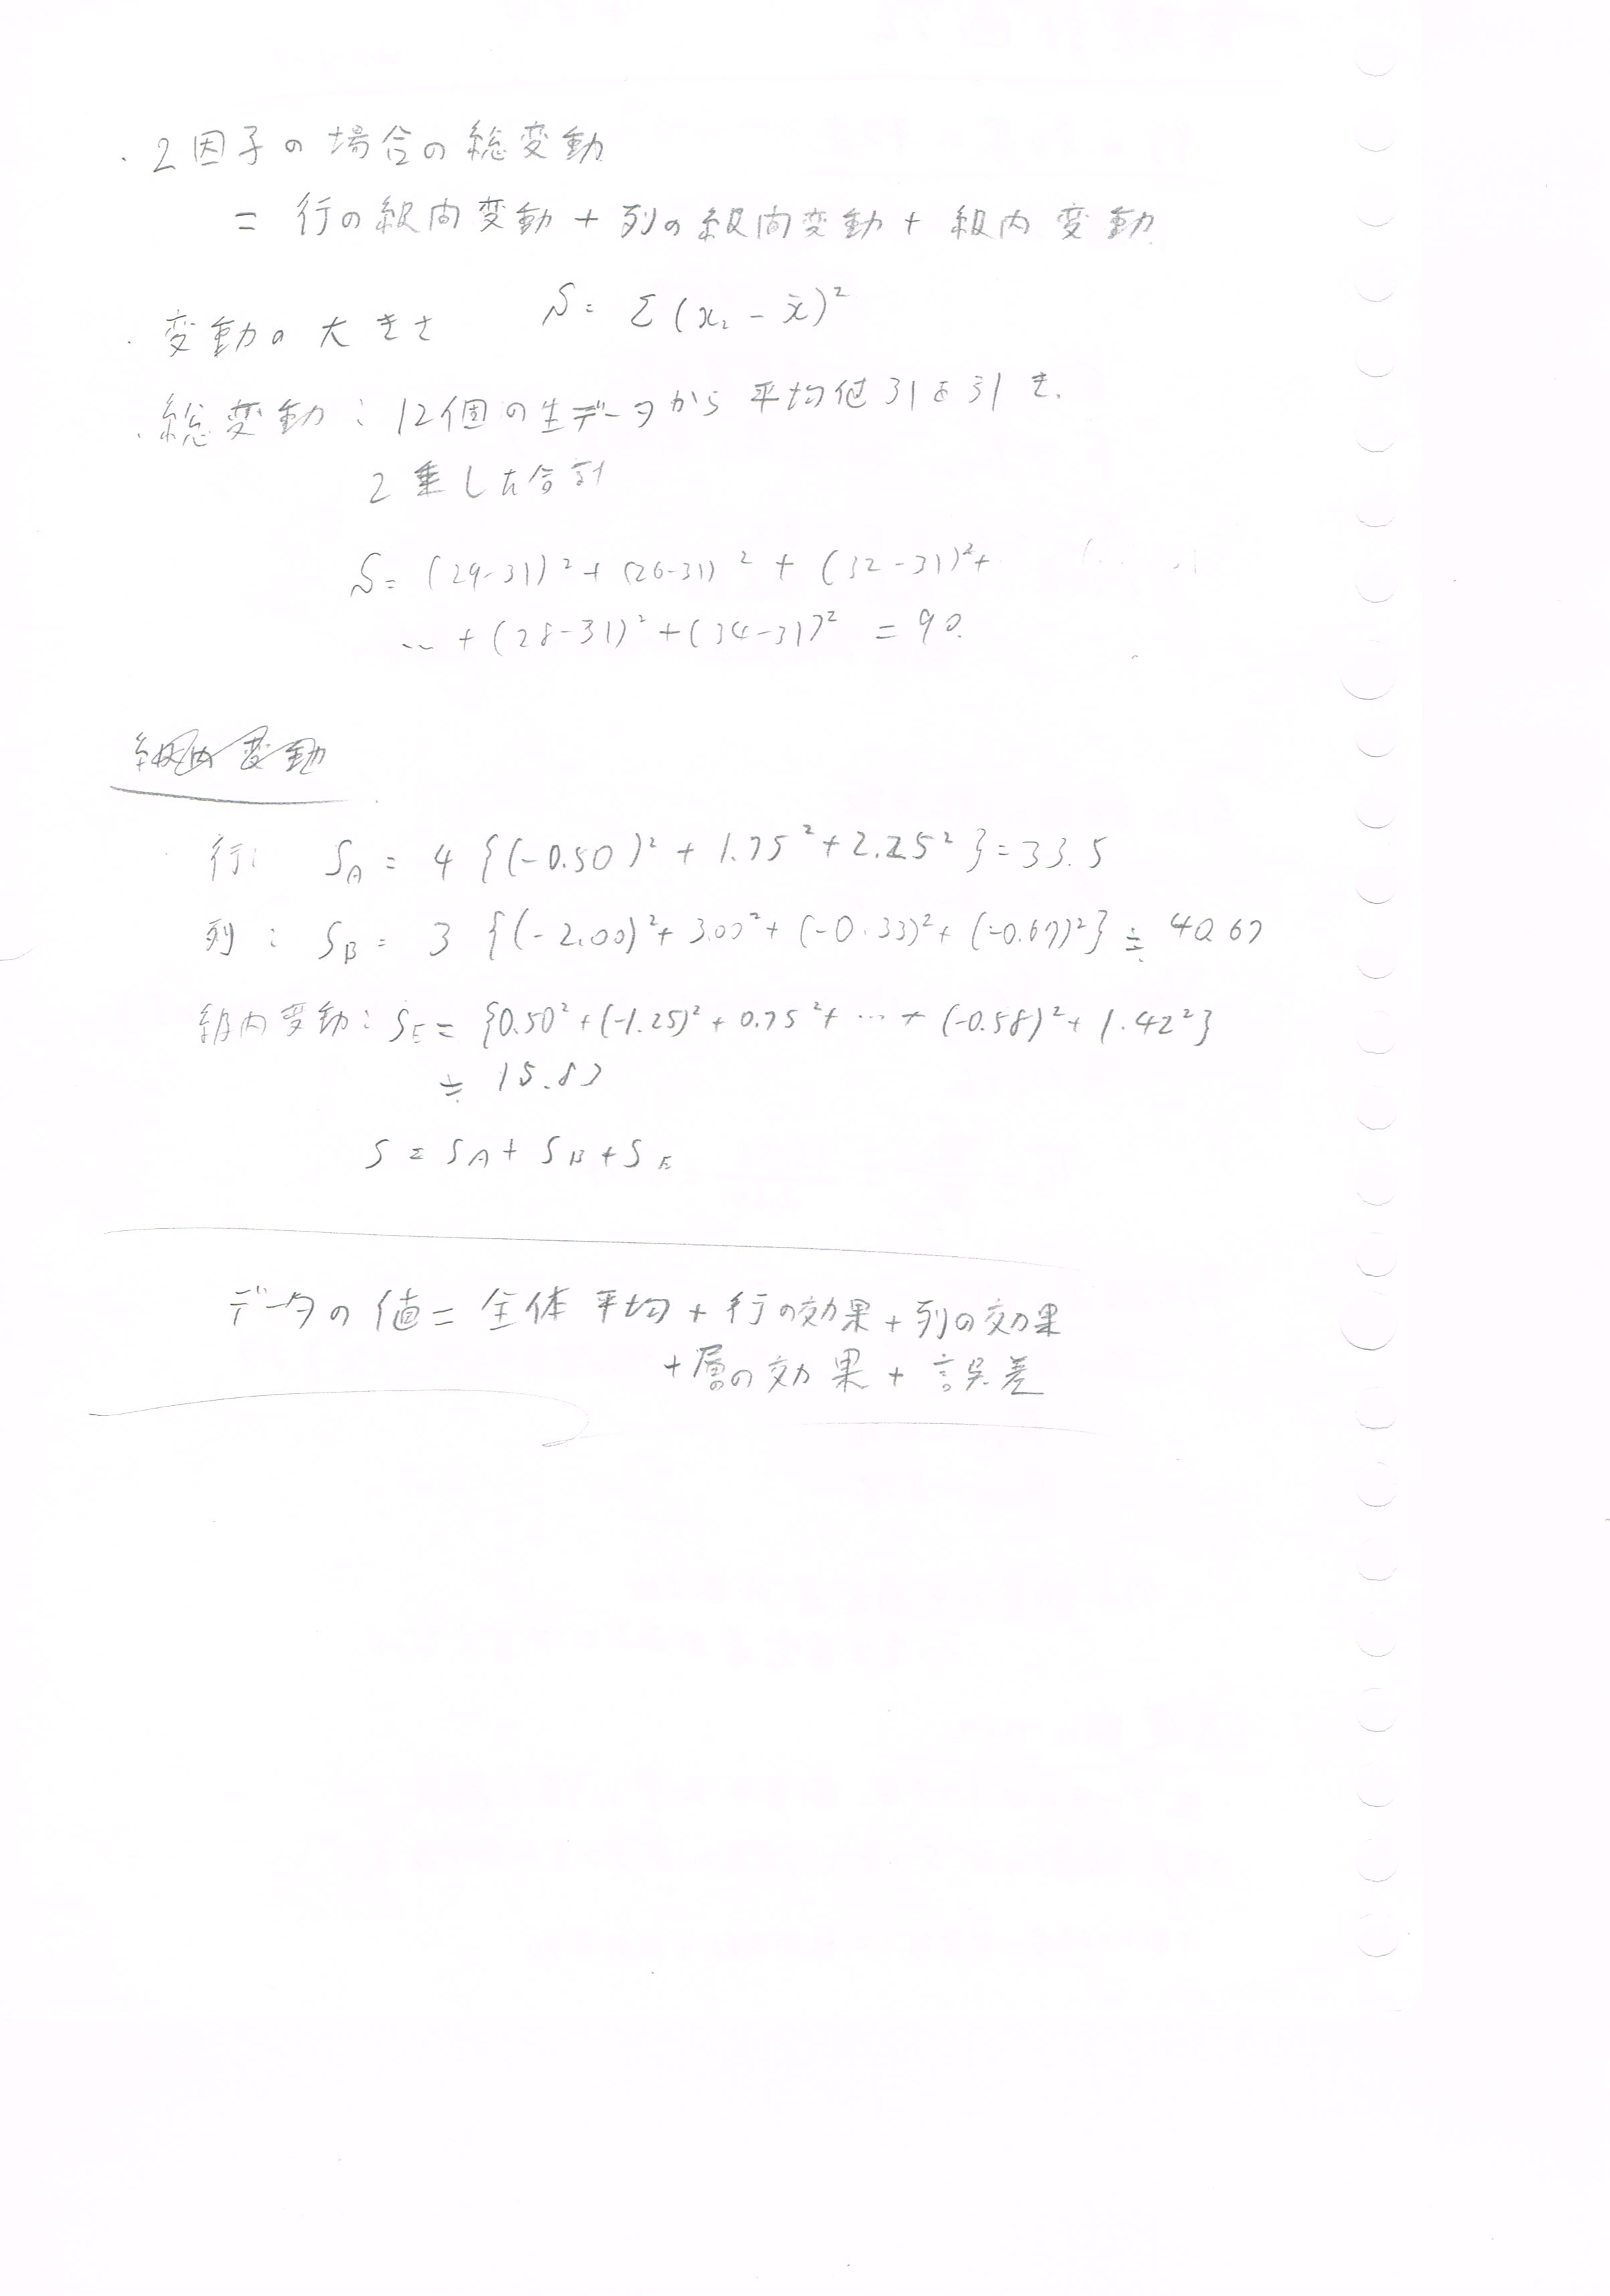 ・2因子の場合の総変動
= 行の級間変動 + 列の級間変動 + 級内変動
・変動の大きさ S = Σ(x₂ - x̄)²
・総変動：12個の生データから平均値31を引き、
2乗した合計
S = (29-31)² + (26-31)² + (32-31)² +
… + (28-31)² + (34-31)² = 90.
行： S_A = 4 {(-0.50)² + 1.75² + 2.25²} = 33.5
列： S_B = 3 {(-2.00)² + 3.00² + (-0.33)² + (-0.67)²} ≒ 40.67
級内変動： S_E = {0.50² + (-1.25)² + 0.75² + … + (-0.58)² + 1.42²}
≒ 15.83
S = S_A + S_B + S_E
データの値 = 全体平均 + 行の効果 + 列の効果
+ 層の効果 + 誤差